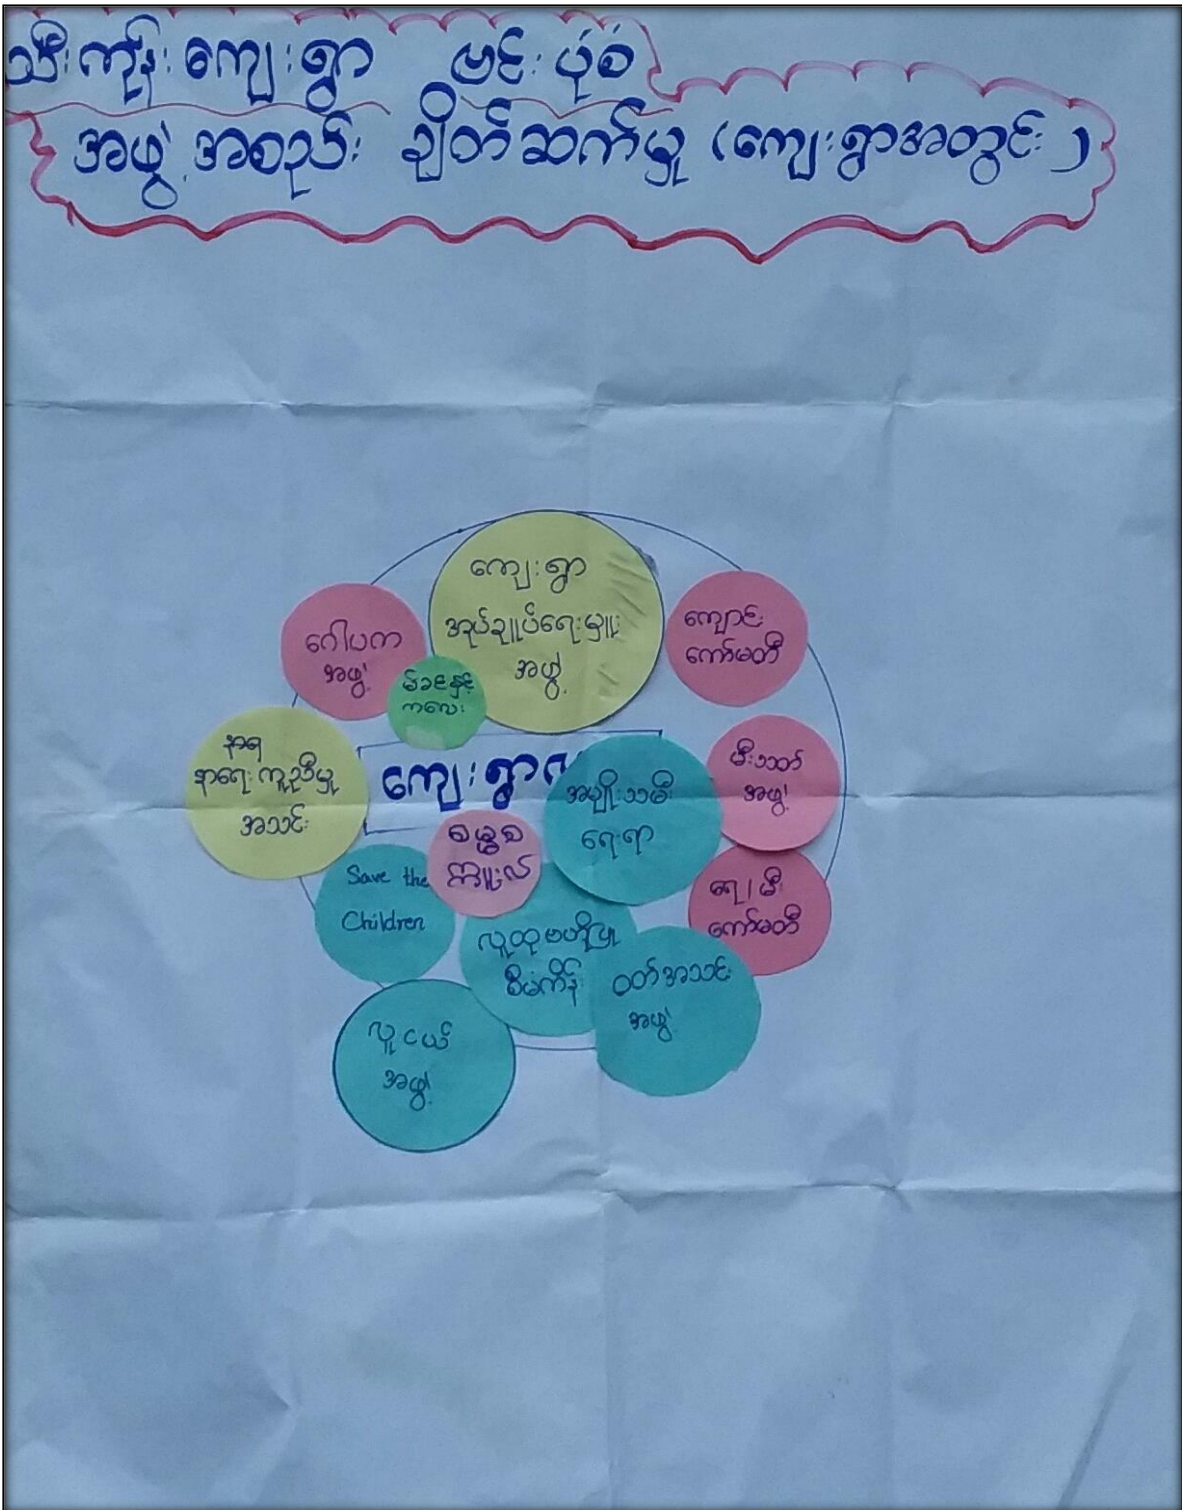 သီးကုန်းကျေးရွာ ဗင်းပုံစံ
အဖွဲ့အစည်း ချိတ်ဆက်မှု (ကျေးရွာအတွင်း)
ကျေးရွာ
အုပ်ချုပ်ရေးမှူး
အဖွဲ့
ဂေါပက
အဖွဲ့
မိခင်နှင့်
ကလေး
ကျောင်း
ကော်မတီ
နာရေးကူညီမှု
အသင်း
ကျေးရွာ
အမျိုးသမီး
ရေးရာ
မီးသတ်
အဖွဲ့
Save the
Children
ရေ၊မီး
ကော်မတီ
လူထုဗဟိုပြု
စီမံကိန်း
ဝတ်အသင်း
အဖွဲ့
လူငယ်
အဖွဲ့